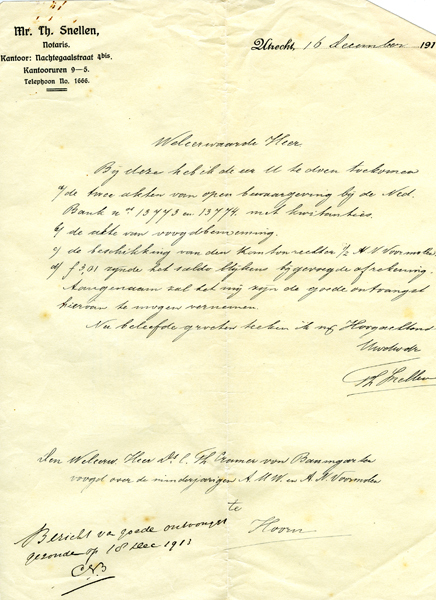 Mr. Th. Snellen,
Notaris.
Kantoor: Nachtegaalstraat 4bis.
Kantooruren 9—5.
Telephoon No. 1666.
Utrecht, 16 december 191
Weleerwaarde Heer
Bij deze heb ik de eer U te doen toekomen
a/ de twee akten van open bewaargeving bij de Ned.
Bank nos 13773 en 13774 met kwitanties.
b/ de akte van voogdbenoeming.
c/ de beschikking van den Kantonrechter
d/ f 3,01 zijnde het saldo blijkens bijgevoegde afrekening.
Aangenaam zal het mij zijn de goede ontvangst
hiervan te mogen vernemen.
Na beleefde groeten teeken ik mij Hoogachtend
Uwdwdr
Th Snellen
Den Weleerw. Heer Ds C. Th Cramer von Baumgarten
voogd over de minderjarigen A. M. W. en A. N. Voormolen
te
Hoorn
Bericht van goede ontvangst
gezonden op 18 dec 1913